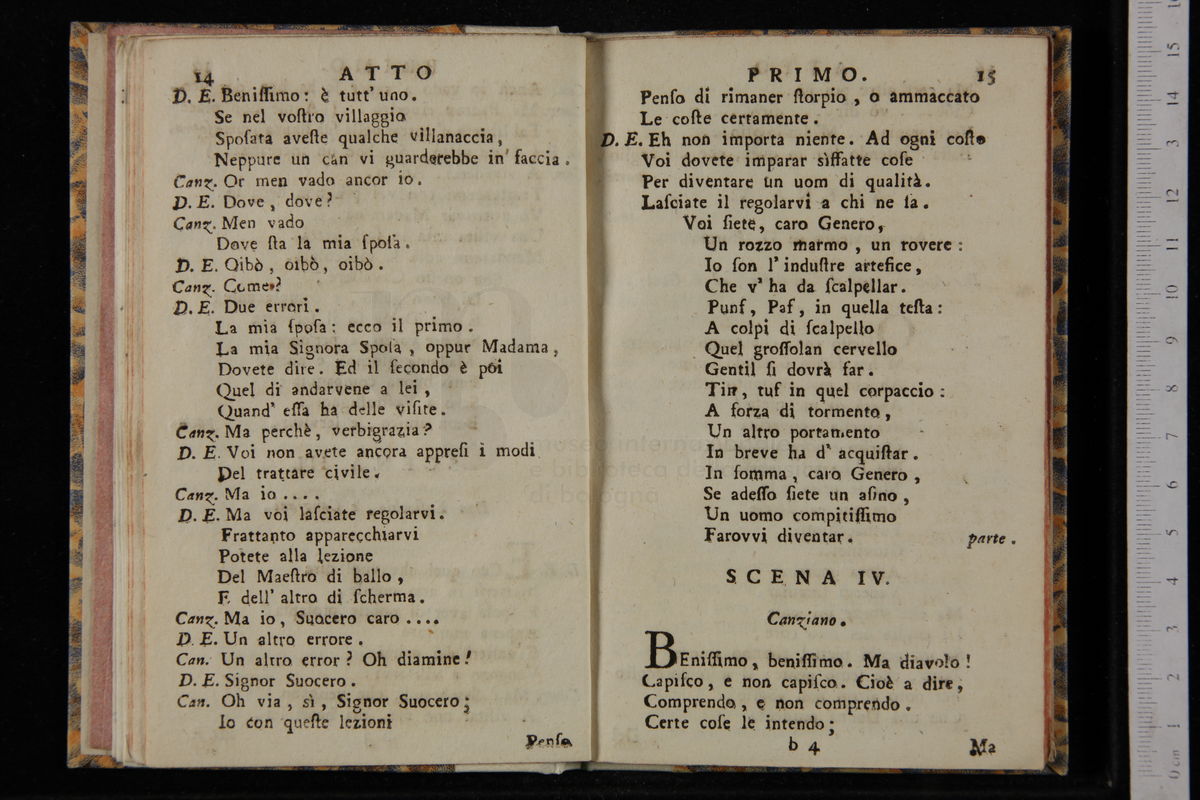 14 ATTO
D. E. Beniſſimo: è tutt' uno.
Se nel voſtro villaggio
Spoſata aveſte qualche villanaccia,
Neppure un can vi guarderebbe in faccia.
Canz. Or men vado ancor io.
D. E. Dove, dove?
Canz. Men vado
Dove ſta la mia ſpoſa.
D. E. Oibò, oibò, oibò.
Canz. Come?
D. E. Due errori.
La mia ſpoſa: ecco il primo.
La mia Signora Spoſa, oppur Madama,
Dovete dire. Ed il ſecondo è poi
Quel di andarvene a lei,
Quand' eſſa ha delle viſite.
Canz. Ma perchè, verbigrazia?
D. E. Voi non avete ancora appreſi i modi
Del trattare civile.
Canz. Ma io ....
D. E. Ma voi laſciate regolarvi.
Frattanto apparecchiarvi
Potete alla lezione
Del Maeſtro di ballo,
E dell' altro di ſcherma.
Canz. Ma io, Suocero caro ....
D. E. Un altro errore.
Can. Un altro error? Oh diamine!
D. E. Signor Suocero.
Can. Oh via, sì, Signor Suocero;
Io con queſte lezioni
Penſo
PRIMO. 15
Penſo di rimaner ſtorpio, o ammaccato
Le coſte certamente.
D. E. Eh non importa niente. Ad ogni coſto
Voi dovete imparar sìffatte coſe
Per diventare un uom di qualità.
Laſciate il regolarvi a chi ne ſa.
Voi ſiete, caro Genero,
Un rozzo marmo, un rovere:
Io ſon l' induſtre artefice,
Che v' ha da ſcalpellar.
Punf, Paf, in quella teſta:
A colpi di ſcalpello
Quel groſſolan cervello
Gentil ſi dovrà far.
Tin, tuf in quel corpaccio:
A forza di tormento,
Un altro portamento
In breve ha d' acquiſtar.
In ſomma, caro Genero,
Se adeſſo ſiete un aſino,
Un uomo compitiſſimo
Farovvi diventar. parte.
SCENA IV.
Canziano.
BEniſſimo, beniſſimo. Ma diavolo!
Capiſco, e non capiſco. Cioè a dire,
Comprendo, e non comprendo.
Certe coſe le intendo;
b 4 Ma